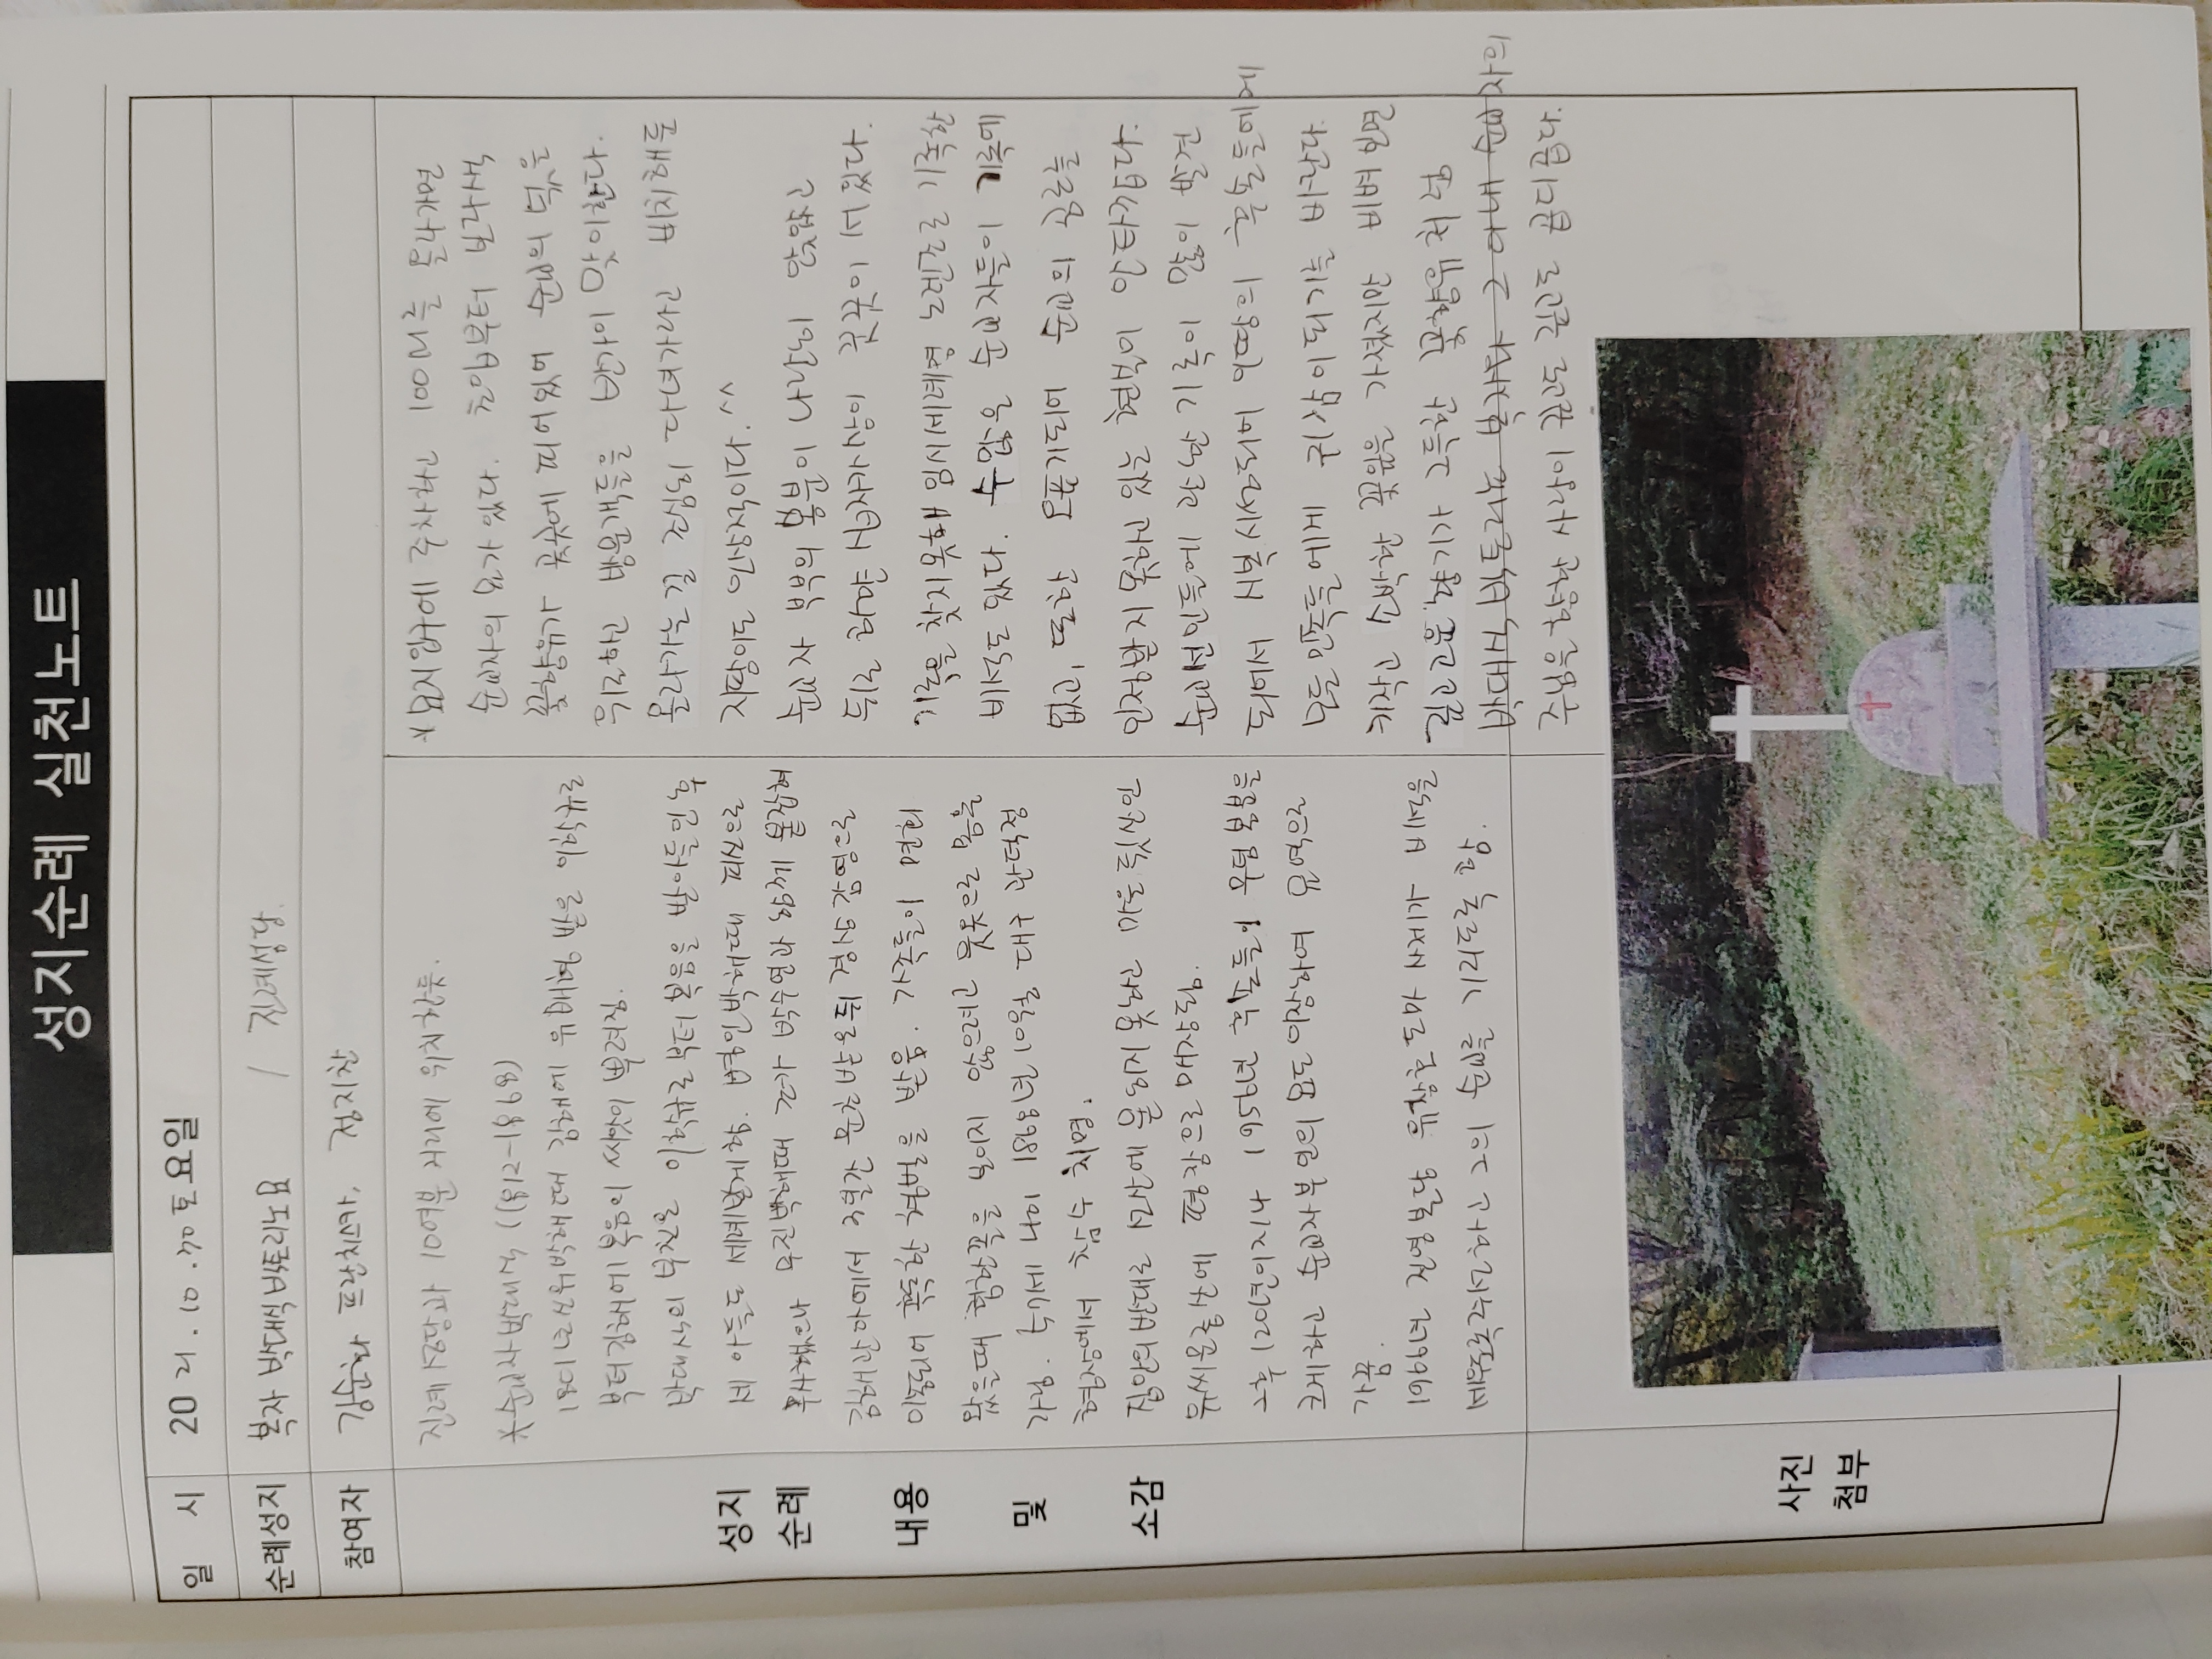 성지순례 실천노트
일 시
2021.10.30 토요일
순례성지
복자 박대식 빅토리노 묘 / 진례성당.
참여자
김순화 프란치스카, 정지찬
성지
순례
내용
및
소감
진례성당과 10여분 거리에 위치한듯.
*순교자 박대식 (1812-1868)
1801년 신유박해때 김해에 유배형 받은 이학규로
부터 김해에 복음의 씨앗이 뿌려짐.
박대식의 부친은 이학규로부터 복음을 받아들인 후
세 아들도 세례받게함. 병인박해때 피신으로
무사했으나 무진박해때 조카 박수연과 함께 붙잡혀
김해관아에서 3일간 문초 받은뒤 경상감영으로
이송되어 혹독한 형벌을 받음. 가족들이 면회
왔을때 험한꼴을 보이지 않으려고 웃옷으로 몸을
가림. 57세 나이 1868년 10월 대구 관덕정
형장에서 참수 치명.
집안의 반대로 선산에 묻히지 못하고 마을 뒷산인
유씨문중산에 평장으로 매장됨.
그후 120년이지나 1956년 후손들이 무덤 봉분을
크게하고 순교자부인의 묘도 이장하여 묘역으로
가꿈.
1966년 진영본당 유창호 도마 사제가 비석을
세우도록주선하고 그의 순교를 기리도록 함.
*묘지입구에 주차하고 100M를 올라가면
순교자의 묘가 있다. 초입부터 보라색
꽃향유가 곳곳에 피어있어 순교의 넋을
위로하고 방문객들을 반가이 맞이한다.
올라가는길 조심히 다녀가라고 비치해둔
지팡이도 인상적이다.^^
순교자 부부의 봉분이 나란히 앉았고
뒤로 하얀 십자가상이 꼿꼿이 서있다.
기록을 찾지못해 임시세례명 로렌조로 기록한
비석도 있다. 수많은 순교자들이 기록에
없고, 또한 오표기되어 순교의 공로를
인정받지 못하고 있는 현실이 안타깝다.
순교선인들에 관한 기록이 많이 발견
되어서 시복시성되어 이땅의 후손들에게
모든민족들에게 귀감이되기를 바란다.
키작고 소박한 꽃잎을 가졌지만 비벼보면
깊고고운 향기가 그득한 꽃향유처럼
박대식 빅토리노 복자와 그 아내 순교자의
주님을 향한 사랑이 깊고도 깊고도 곱디곱다.
사진
첨부